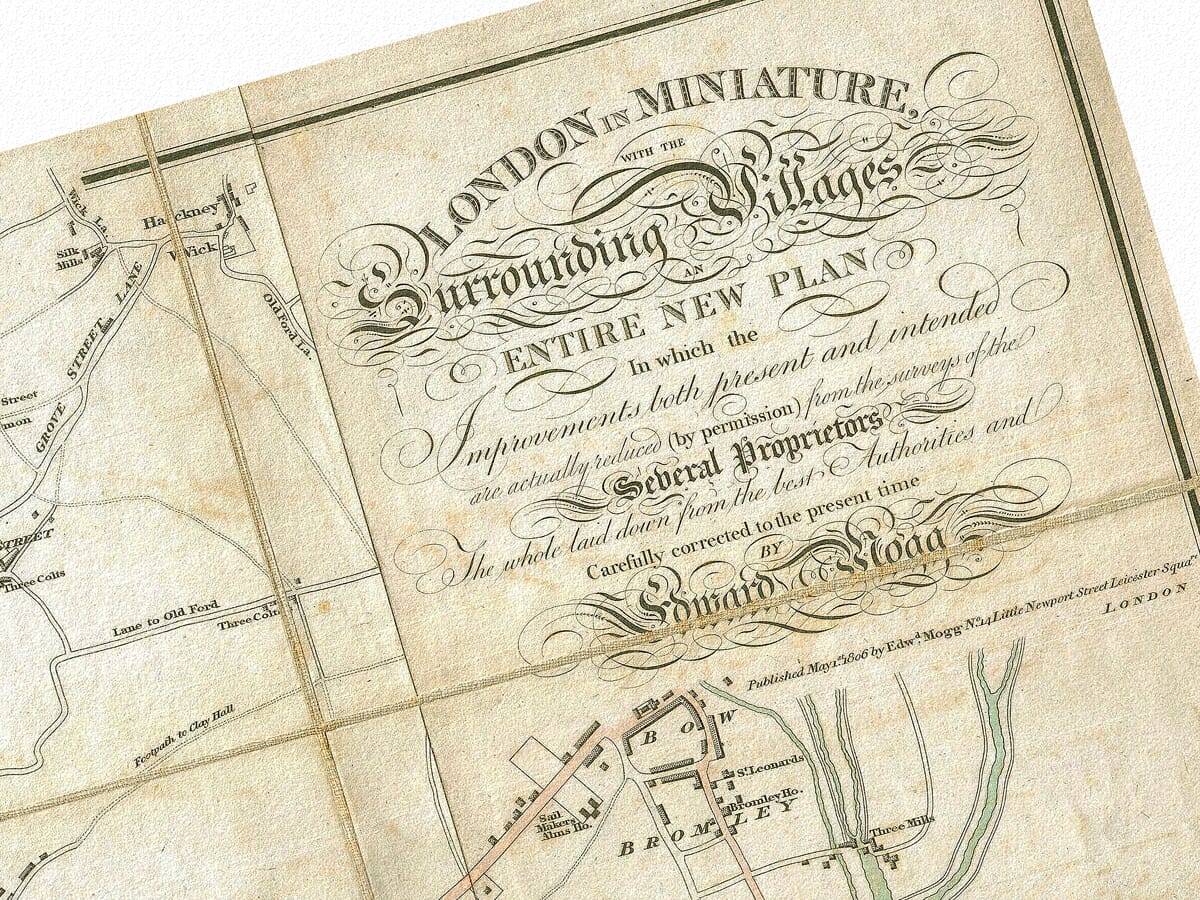 LONDON IN MINIATURE,
WITH THE
Surrounding Villages
AN
ENTIRE NEW PLAN
In which the
Improvements both present and intended
are actually reduced (by permission) from the surveys of the
Several Proprietors
The whole laid down from the best Authorities and
Carefully corrected to the present time
BY
Edward Mogg
Published May 1st. 1806 by Edwd. Mogg No. 14 Little Newport Street Leicester Squa
LONDON
Wick La.
Hackney
Wick
Silk
Mills
Old Ford La.
GROVE STREET LANE
Street
mon
STREET
Three Colts
Lane to Old Ford
Three Colts
Footpath to Clay Hall
BOW
St. Leonards
Bromley Ho.
BROMLEY
Sail
Makers
Alms Ho.
Three Mills